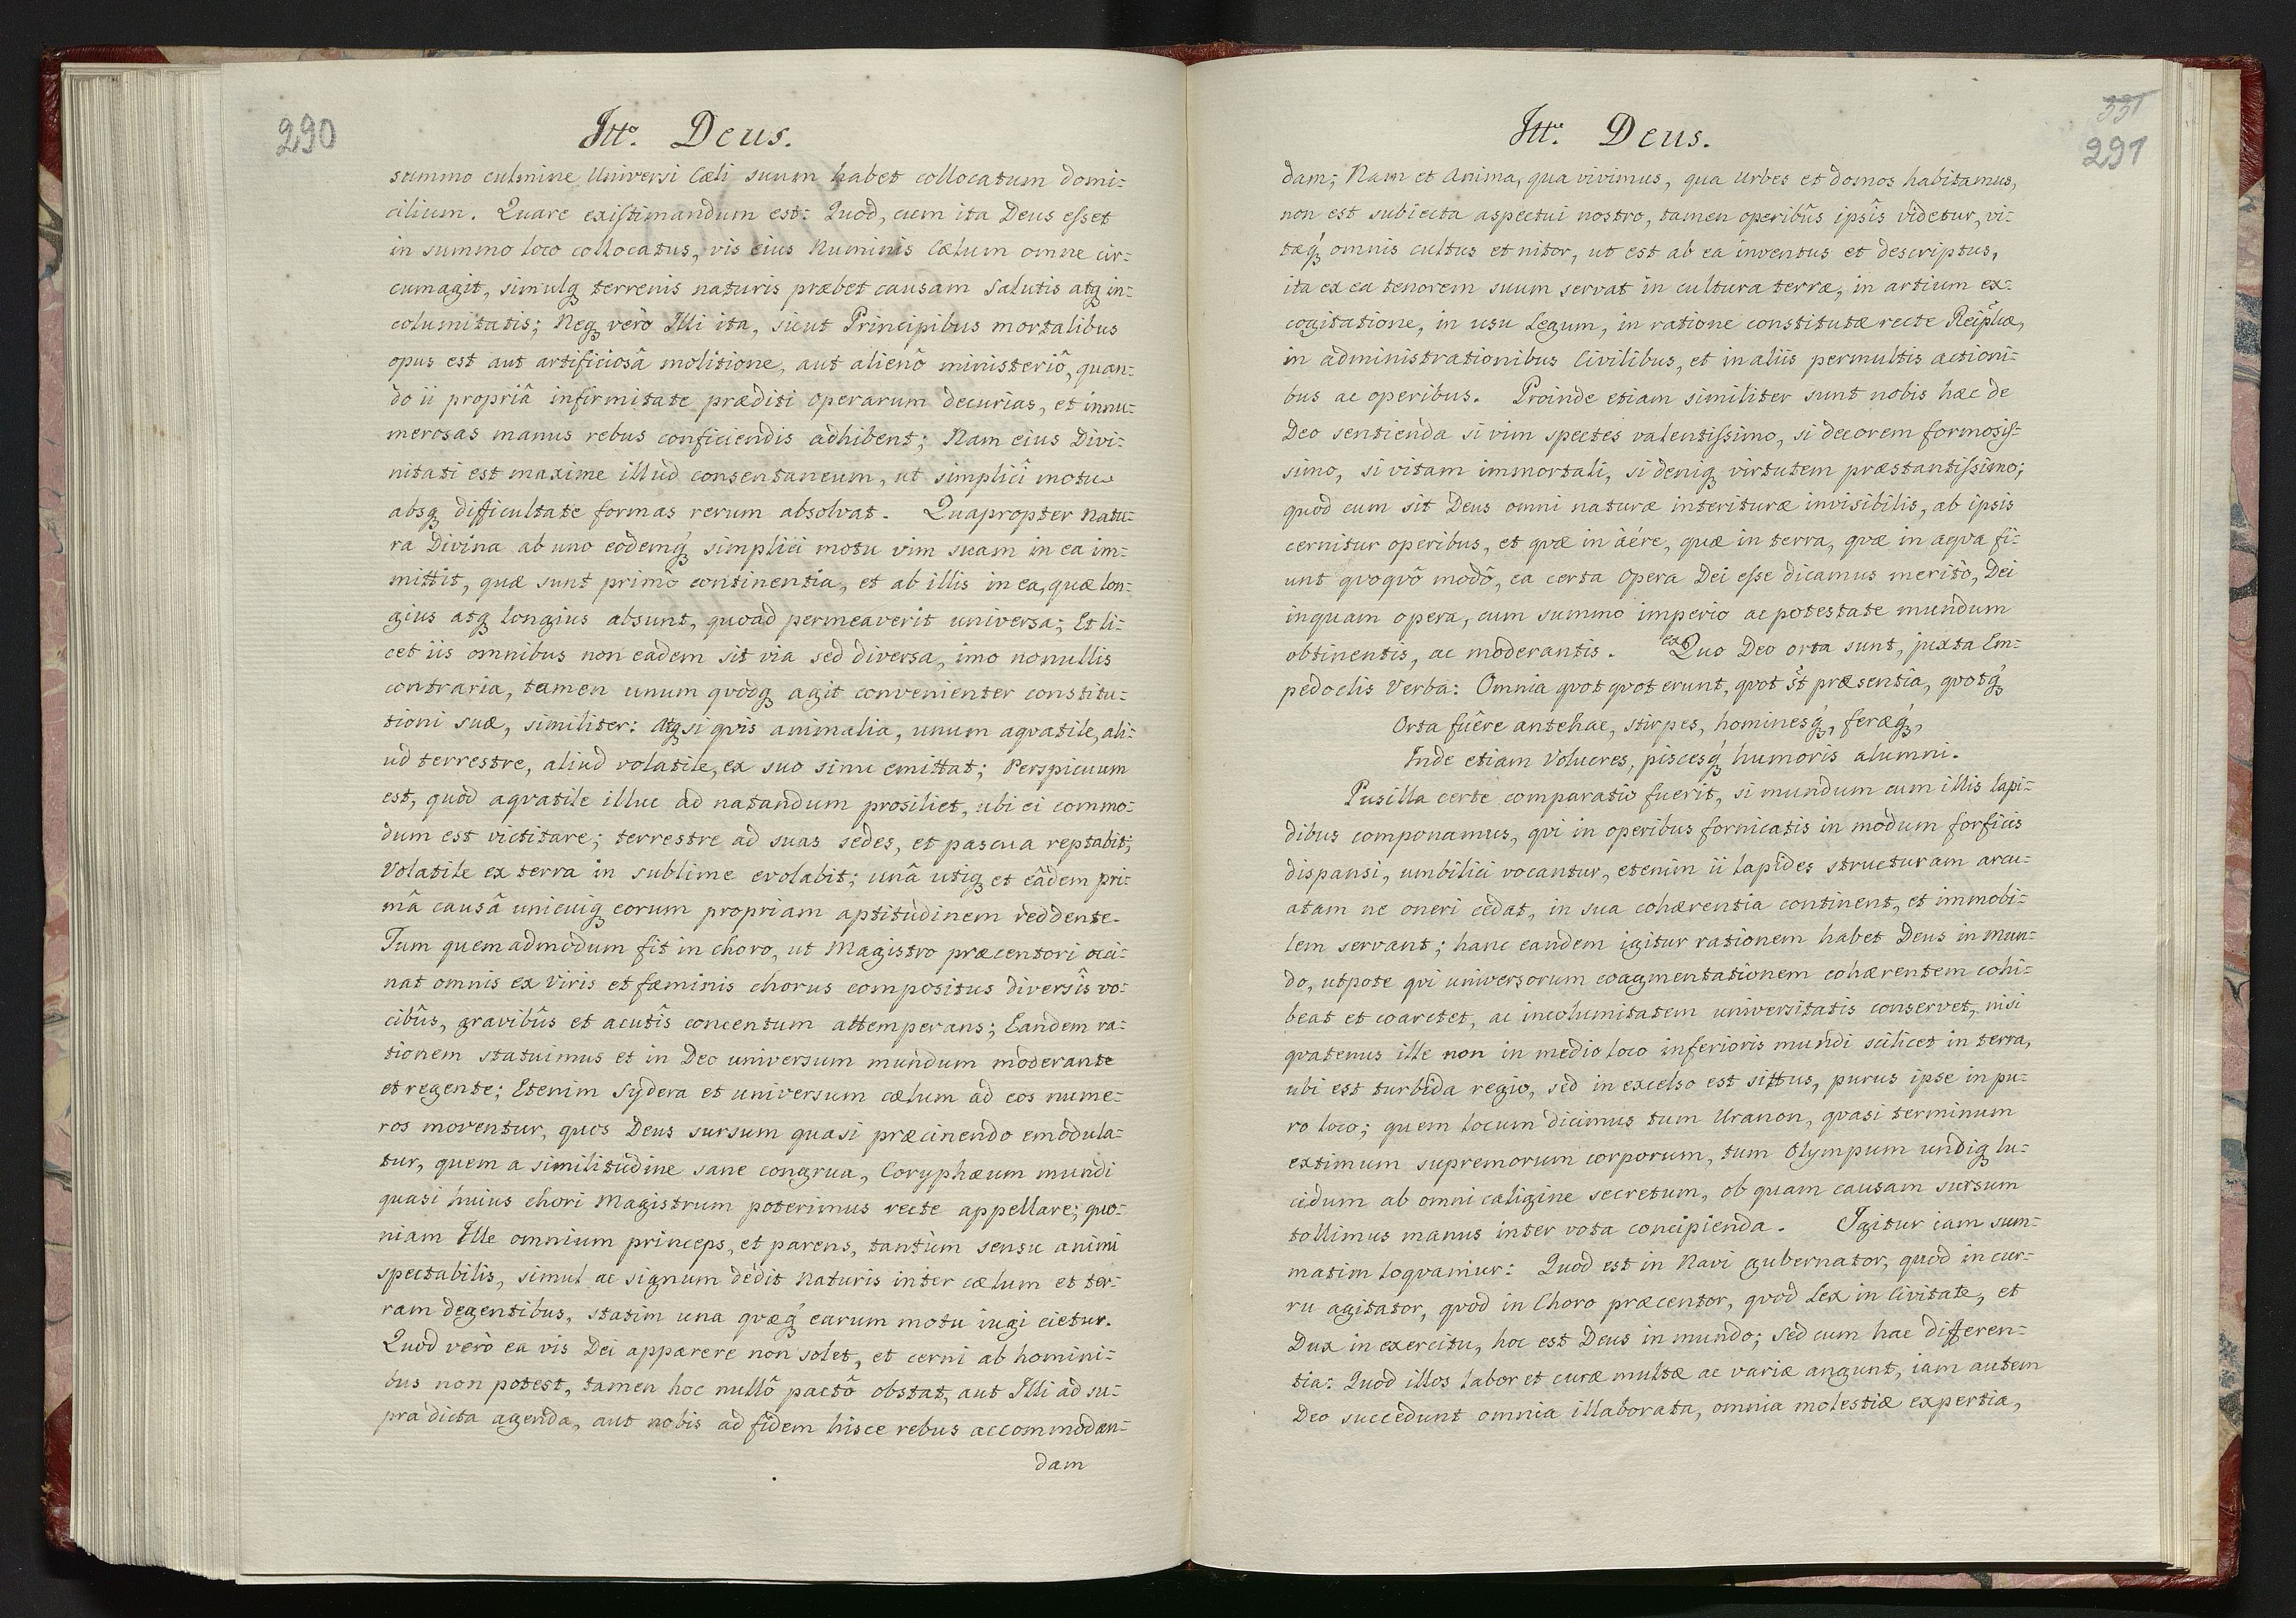 290
Itto. Deus.
summo culmine Universi Cæli suum habet collocatum domi:
cilium. Quare existimandum est: Quod, cum ita Deus esset
in summo loco collocatus, vis eius Numinis Cælum omne cir:
cumagit, simulqꝫ terrenis naturis præbet causam Salutis atqꝫ in:
columitatis; Neqꝫ verò Illi ita, sicut Principibus mortalibus
opus est aut artificiosâ molitione, aut alienô ministeriô, quan:
do ii propriâ infirmitate præditi operarum decurias, et innu:
merosas manus rebus conficiendis adhibent; Nam eius Divi:
nitati est maxime illud consentaneum, ut simplici motu
absqꝫ difficultate formas rerum absolvat. Quapropter Natu:
ra Divina ab uno eodemqꝫ́ simplici motu vim suam in ea im:
mittit, quæ sunt primò continentia, et ab illis in ea, quæ lon:
gius atqꝫ longius absunt, quoad permeaverit universa; Et li:
cet iis omnibus non eadem sit via sed diversa, imo nonullis
contraria, tamen unum qvodqꝫ agit convenienter constitu:
tioni suæ, similiter: Atqꝫ si qvis animalia, unum aqvatile, ali:
ud terrestre, aliud volatile, ex suo sinu emittat; Perspicuum
est, quod aqvatile illuc ad natandum prosiliet, ubi ei commo:
dum est victitare; terrestre ad suas sedes, et pascua reptabit;
Volatile ex terra in sublime evolabit; unâ utiqꝫ et eâdem pri:
mâ causâ unicuiqꝫ eorum propriam aptitudinem reddente.
Tum quemadmodum fit in choro, ut Magistro præcentori oci:
nat omnis ex Viris et fæminis chorus compositus diversîs vo:
cibûs, gravibûs et acutîs concentum attemperans; Eandem ra:
tionem statuimus et in Deo universum mundum moderante
et regente; Etenim Sydera et universum cælum ad eos nume:
ros moventur, quos Deus sursum quasi præcinendo emodula:
tur, quem a similitudine sane congrua, Coryphæum mundi
quasi huius chori Magistrum poterimus recte appellare; quo:
niam Ille omnium princeps, et parens, tantùm sensu animi
spectabilis, simul ac signum dedit Naturis inter cælum et ter:
ram degentibus, statim una quæqꝫ́ earum motu iugi cietur.
Quod verò ea vis Dei apparere non solet, et cerni ab homini:
bus non potest, tamen hoc nullô pactô obstat, aut Illi ad su:
pra dicta agenda, aut nobis ad fidem hisce rebus accommodan:
dam
331
291
Itt. Deus.
dam; Nam et Anima, qua vivimus, qua Urbes et domos habitamus,
non est subiecta aspectui nostro, tamen operibûs ipsîs videtur, vi:
tæqꝫ́ omnis cultus et nitor, ut est ab ea inventus et descriptus,
ita ex ea tenorem suum servat in cultura terræ, in artium ex:
cogitatione, in usu Legum, in ratione constitutæ recte Reipl̃cæ,
in administrationibus Civilibus, et in aliis permultis actioni:
bus ac operibus. Proinde etiam similiter sunt nobis hæc de
Deo sentienda si vim spectes valentissimo, si decorem formosis:
simo, si vitam immortali, si deniqꝫ virtutem præstantissimo;
quod cum sit Deus omni naturæ interituræ invisibilis, ab ipsis
cernitur operibus, et qvæ in àére, quæ in terra, qvæ in aqva fi:
unt qvoqvô modô, ea certa Opera Dei esse dicamus meritò, Dei
inquam opera, cum summo imperio ac potestate mundum
obtinentis, ac moderantis. ex Quo Deo orta sunt, juxta Em:
pedoclis Verba: Omnia qvot qvot erunt, qvot s̃t præsentia, qvotqꝫ́
Orta fuêre antehac, stirpes, hominesqꝫ́, feræqꝫ́,
Inde etiam Volucres, piscesqꝫ́ humoris alumni.
Pusilla certe comparatio fuerit, si mundum cum illis lapi:
dibus componamus, qvi in operibus fornicatis in modum forficis
dispansi, umbilici vocantur, etenim ii lapides structuram arcu:
atam ne oneri cedat, in sua cohærentia continent, et immobi:
lem servant; hanc eandem igitur rationem habet Deus in Mun:
do, utpote qvi universorum coagmentationem cohærentem cohi:
beat et coarctet, ac incolumitatem universitatis conservet, nisi
qvatenus ille non in medio loco inferioris mundi scilicet in terra,
ubi est turbida regio, sed in excelso est sittus, purus ipse in pu:
ro loco; quem locum dicimus tum Uranon, qvasi terminum
extimum supremorum corporum, tum Olympum undiqꝫ lu:
cidum ab omni caligine secretum, ob quam causam sursum
tollimus manus inter vota concipienda. Igitur iam sum:
matim loqvamur: Quod est in Navi gubernator, quod in cur:
ru agitator, qvod in Choro præcentor, qvod Lex in Civitate, et
Dux in exercitu, hoc est Deus in mundo; sed cum hac differen:
tia: Quod illos labor et curæ multæ ac variæ angunt, iam autem
Deo succedunt omnia illaborata, omnia molestiæ expertia,